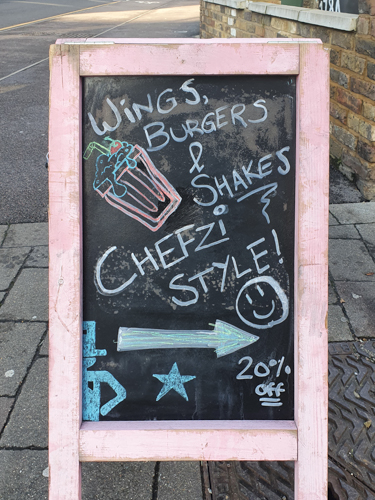 WINGS,
BURGERS
&
SHAKES
CHEFZI
STYLE!
20%
off